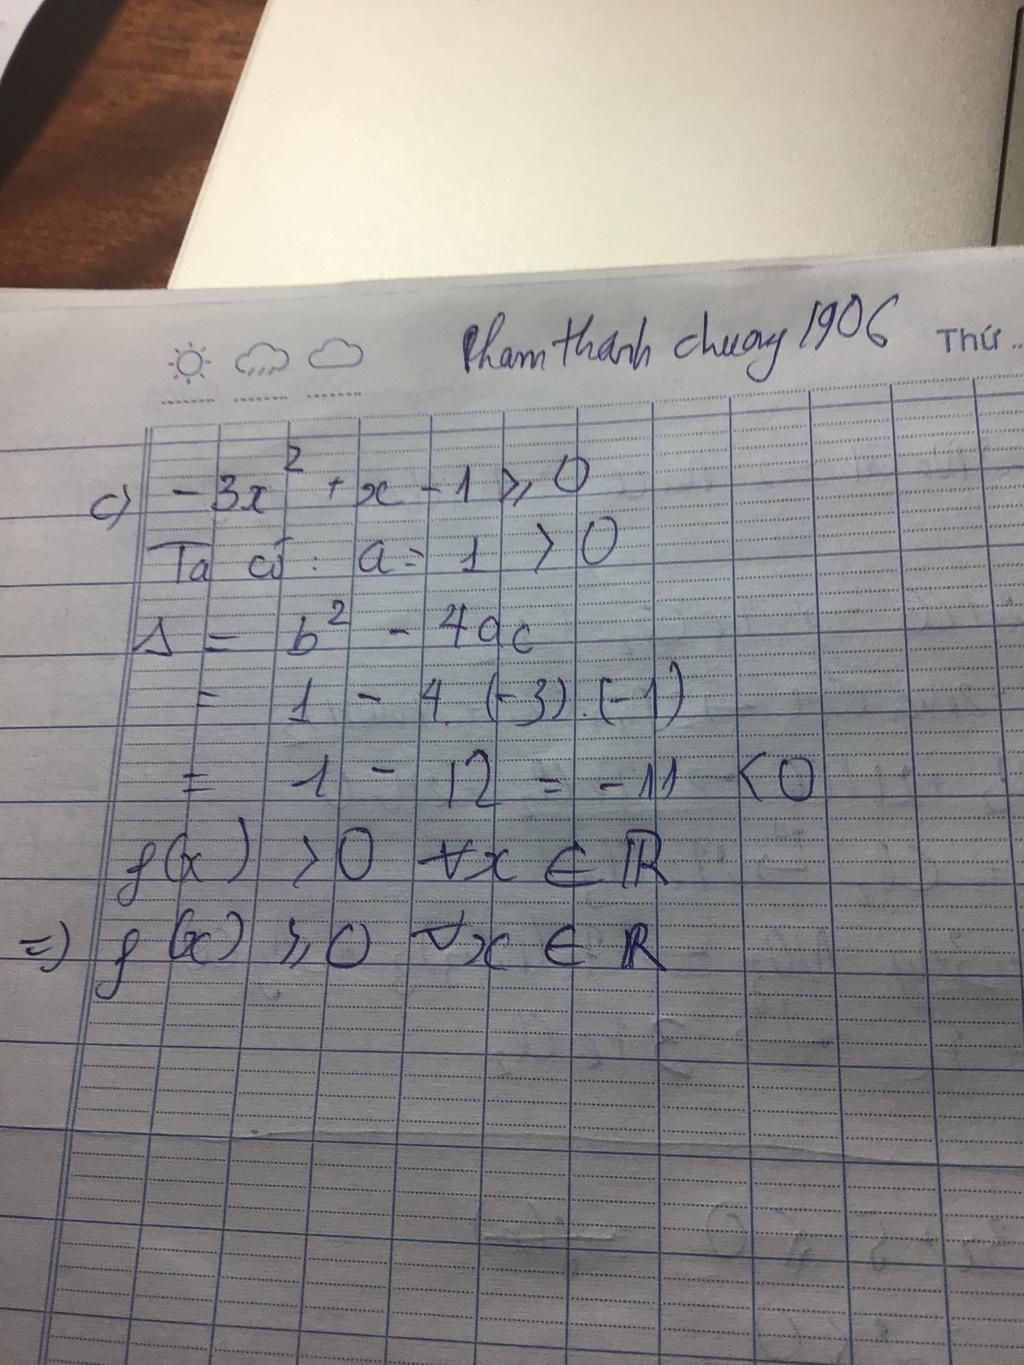 Pham thanh chương 1906
Thứ ..
c) -3x² + x - 1 ⩾ 0
Ta có : a = 1 > 0
Δ = b² - 4ac
= 1 - 4. (-3) . (-1)
= 1 - 12 = -11 < 0
f(x) > 0 ∀x ∈ ℝ
=> f(x) ⩾ 0 ∀x ∈ ℝ